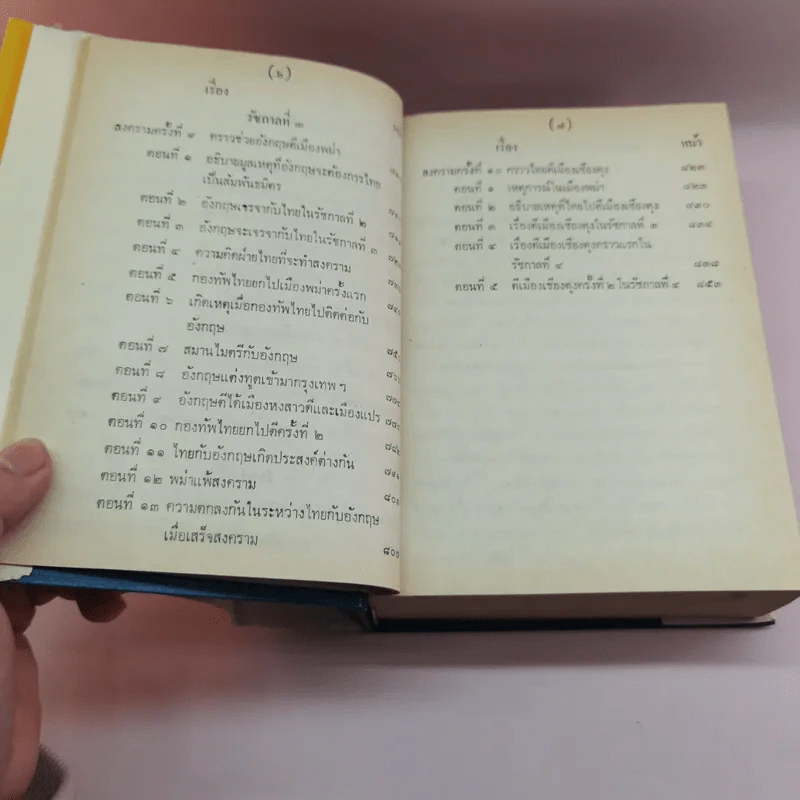 (๖)
เรื่อง
รัชกาลที่ ๓
สงครามครั้งที่ ๙ คราวช่วยอังกฤษตีเมืองพม่า
ตอนที่ ๑ อธิบายมูลเหตุที่อังกฤษจะต้องการไทย
เป็นสัมพันธมิตร
ตอนที่ ๒ อังกฤษเจรจากับไทยในรัชกาลที่ ๒
ตอนที่ ๓ อังกฤษเจรจากับไทยในรัชกาลที่ ๓
ตอนที่ ๔ ความคิดฝ่ายไทยที่จะทำสงคราม
ตอนที่ ๕ กองทัพไทยยกไปเมืองพม่าครั้งแรก
ตอนที่ ๖ เกิดเหตุเมื่อกองทัพไทยไปติดต่อกับ
อังกฤษ
ตอนที่ ๗ สมานไมตรีกับอังกฤษ
ตอนที่ ๘ อังกฤษแต่งทูตเข้ามากรุงเทพฯ
ตอนที่ ๙ อังกฤษตีได้เมืองหงสาวดีและเมืองแปร
ตอนที่ ๑๐ กองทัพไทยยกไปตีครั้งที่ ๒
ตอนที่ ๑๑ ไทยกับอังกฤษเกิดประสงค์ต่างกัน
ตอนที่ ๑๒ พม่าแพ้สงคราม
ตอนที่ ๑๓ ความตกลงกันในระหว่างไทยกับอังกฤษ
เมื่อเสร็จสงคราม
เรื่อง หน้า
สงครามครั้งที่ ๑๐ คราวไทยตีเมืองเชียงตุง ๘๒๓
ตอนที่ ๑ เหตุการณ์ในเมืองพม่า ๘๒๓
ตอนที่ ๒ อธิบายเหตุที่ไทยไปตีเมืองเชียงตุง ๘๓๐
ตอนที่ ๓ เรื่องตีเมืองเชียงตุงในรัชกาลที่ ๓ ๘๓๔
ตอนที่ ๔ เรื่องตีเมืองเชียงตุงคราวแรกใน
รัชกาลที่ ๔ ๘๓๘
ตอนที่ ๕ ตีเมืองเชียงตุงครั้งที่ ๒ ในรัชกาลที่ ๔ ๘๕๓